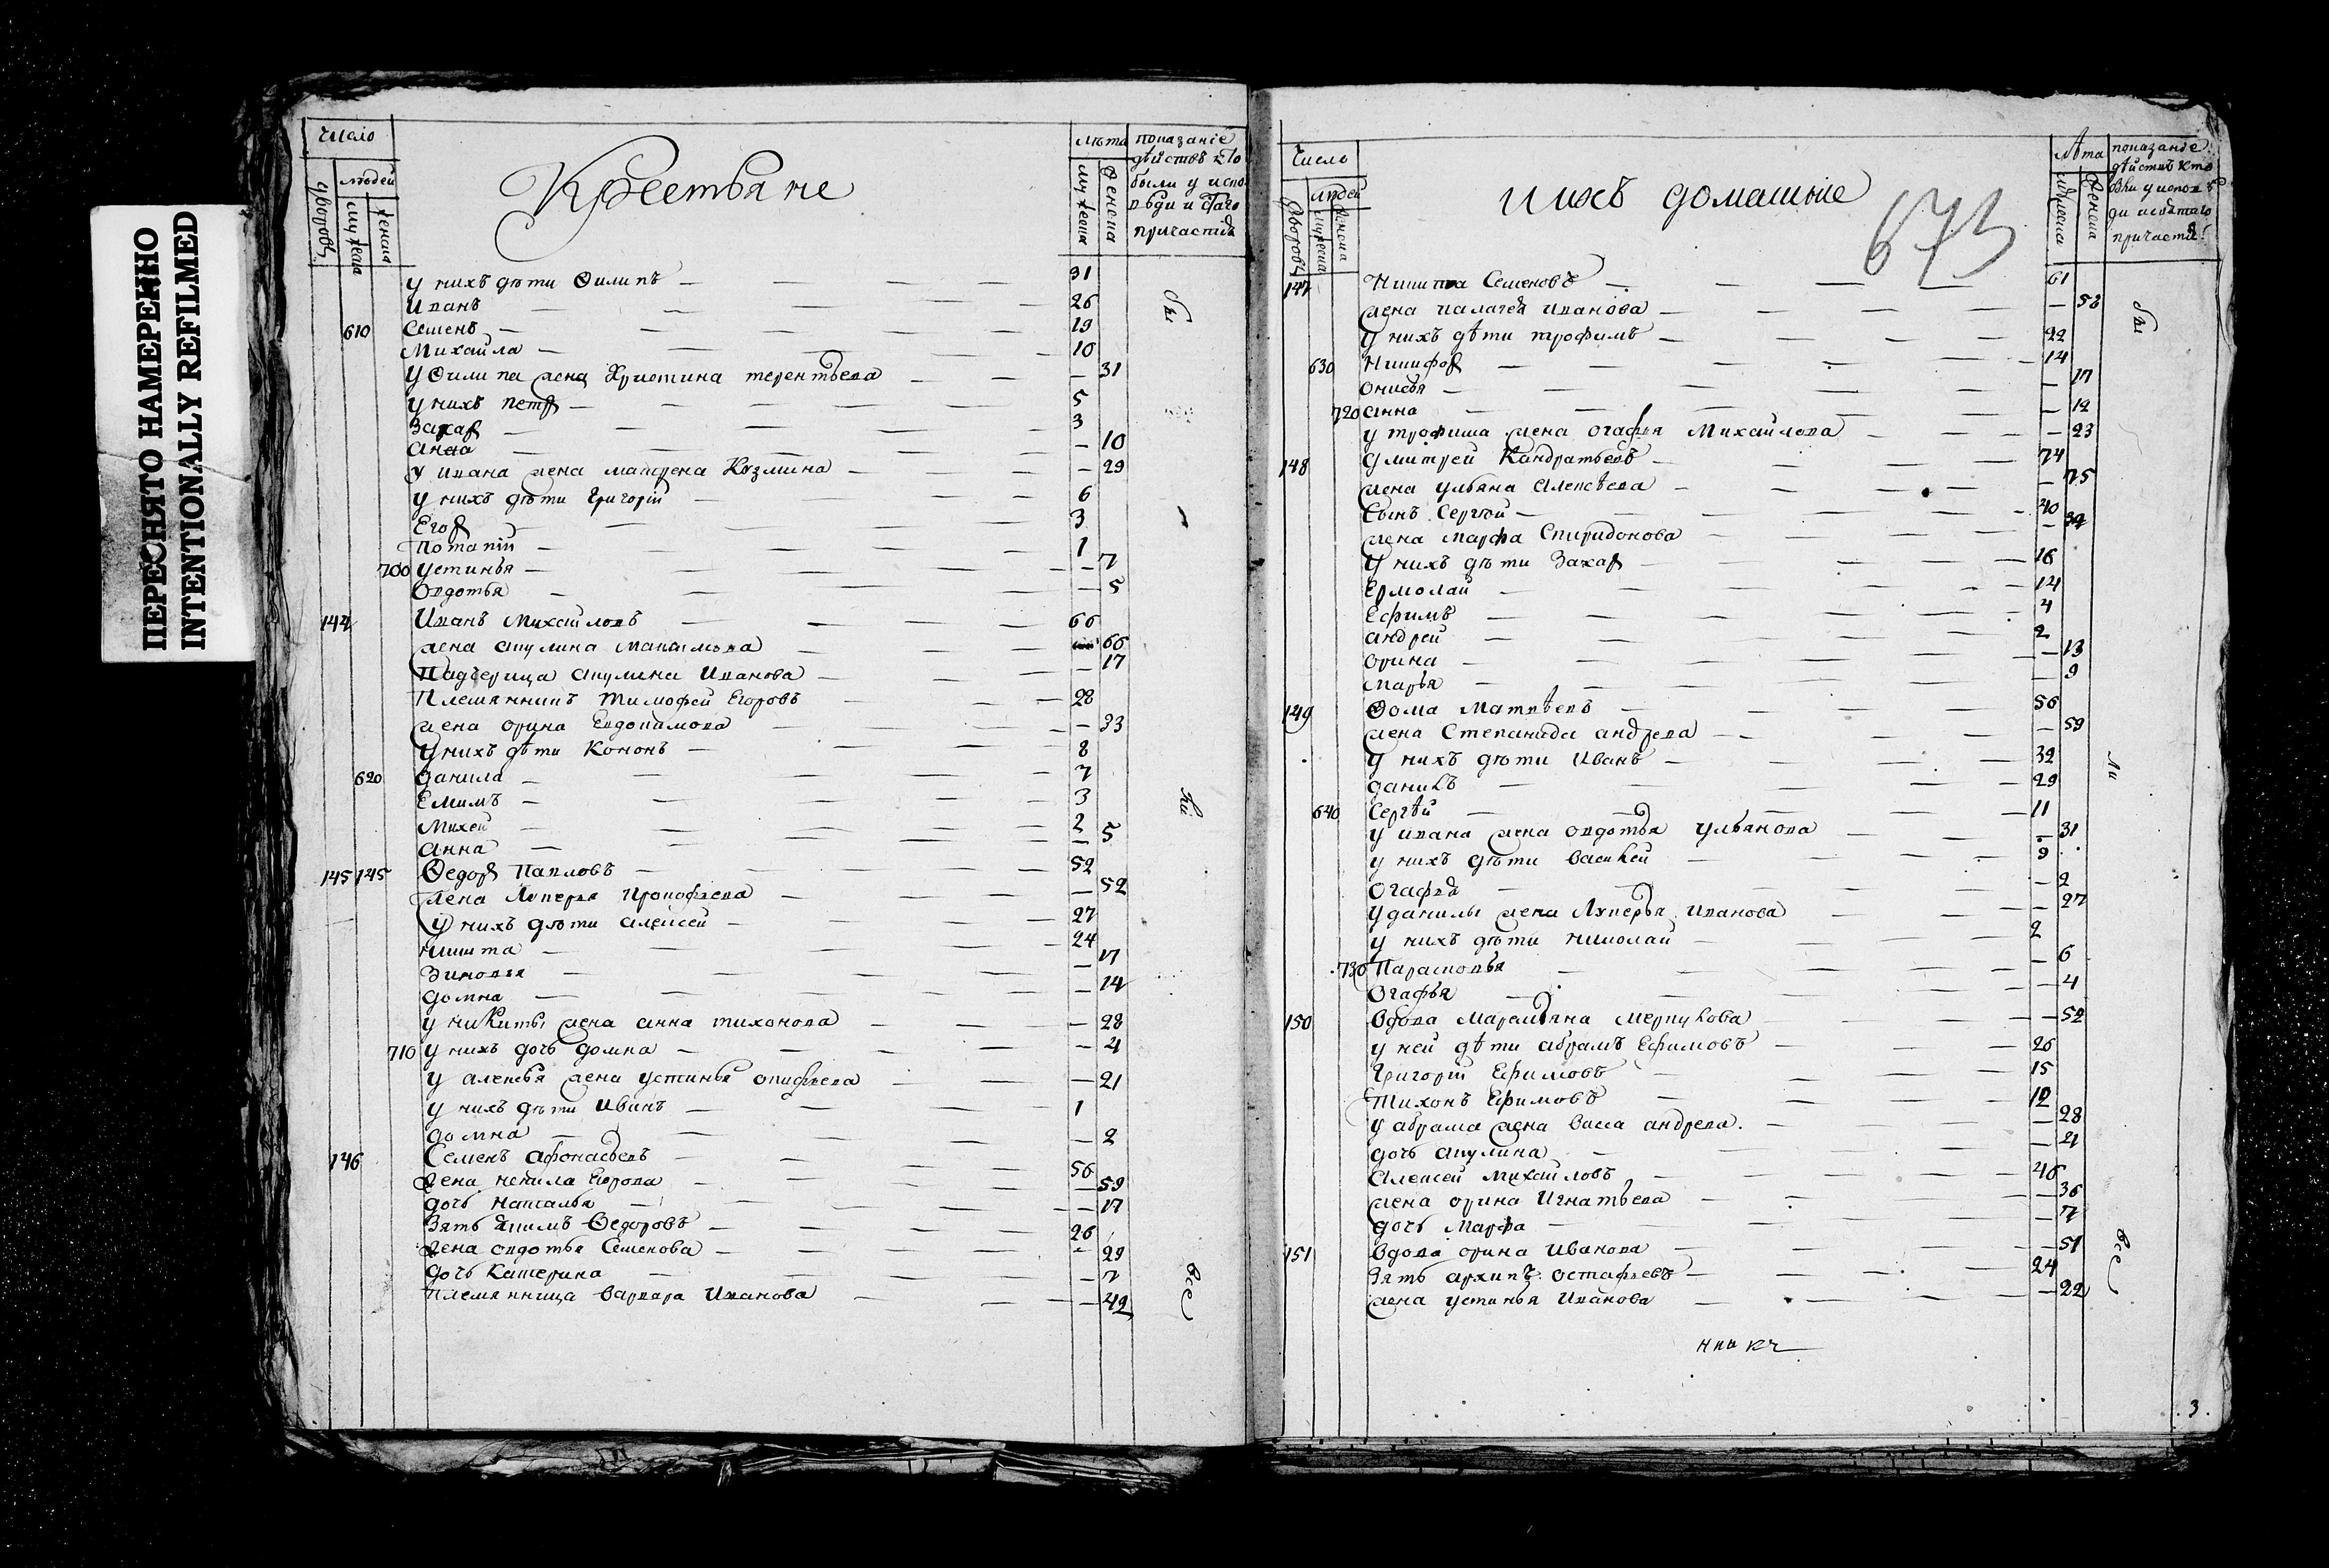 ПЕРЕСНЯТО НАМЕРЕННО
INTENTIONALLY REFILMED
Число
людей
дворовъ
мужеска
женска
Крестьяне
лѣта
мужеска
женска
показаніе
дѣйствъ кто
были у испо
вѣди и стаго
причастія
у нихъ дѣти Филипъ — 31
Иванъ — 26
610 Семенъ — 19
Михайла — 10
у Филипа жена Христина терентьева — 31
у нихъ петръ — 5
Захаръ — 3
Анна — 10
у ивана жена матрена Козмина — 29
у нихъ дѣти Григорій — 6
Егоръ — 3
Потапій — 1
700 устинья — 7
Овдотья — 5
144 Иванъ Михайловъ — 66
жена акулина максимова — 66
Падчерица акулина Иванова — 17
Племянникъ Тимофей Егоровъ — 28
жена орина Евдокимова — 33
у нихъ дѣти Кононъ — 8
620 данила — 7
Екимъ — 3
Михей — 2
анна — 5
145 145 Ѳедоръ Павловъ — 52
жена Лукерья Прокофьева — 52
у нихъ дѣти алексей — 27
никита — 24
Зиновья — 17
домна — 14
у никиты жена анна тихонова — 28
710 у нихъ дочь домна — 4
у алексѣя жена устинья — 21
у нихъ дѣти Иванъ — 1
домна — 2
146 Семенъ афонасьевъ — 56
жена ненила Егорова — 59
дочь наталья — 17
Зять якимъ Ѳедоровъ — 26
жена овдотья Семенова — 29
дочь Катерина — 7
племянница Варвара Иванова — 42
бы
ли
все
Число
людей
дворовъ
мужеска
женска
и ихъ домашніе
673
лѣта
мужеска
женска
показаніе
дѣйствъ кто
были у испов ѣ
ди и святаго
причастія
147 Никита Семеновъ — 61
жена палагея иванова — 58
у нихъ дѣти трофимъ — 22
630 Никифоръ — 14
онисья — 17
720 анна — 12
у трофима жена огафья Михайлова — 23
148 дмитрей Кандратьевъ — 74
жена ульяна алексѣева — 75
Сынъ Сергѣй — 40
жена марфа Спиридонова — 39
у нихъ дѣти Захаръ — 16
Ермолай — 14
Ефимъ — 4
андрей — 2
орина — 13
марья — 9
149 Ѳома Матвѣевъ — 56
жена Степанида андреева — 59
у нихъ дѣти Иванъ — 32
данилъ — 29
640 Сергѣй — 11
у ивана жена овдотья ульянова — 31
у нихъ дѣти василей — 9
Огафья — 2
у данилы жена Лукерья Иванова — 27
у нихъ дѣти николай — 2
730 Парасковья — 6
Огафья — 4
150 Вдова Маремьяна меркулова — 52
у ней дѣти абрамъ Ефимовъ — 26
Григорій Ефимовъ — 15
Тихонъ Ефимовъ — 12
у абрама жена васса андреева. — 28
дочь акулина — 4
Алексей михайловъ — 46
жена орина Игнатьева — 36
дочь Марфа — 7
151 Вдова орина Иванова — 51
Зять архипъ остафьевъ — 24
жена устинья Иванова — 22
бы
ли
все
3.